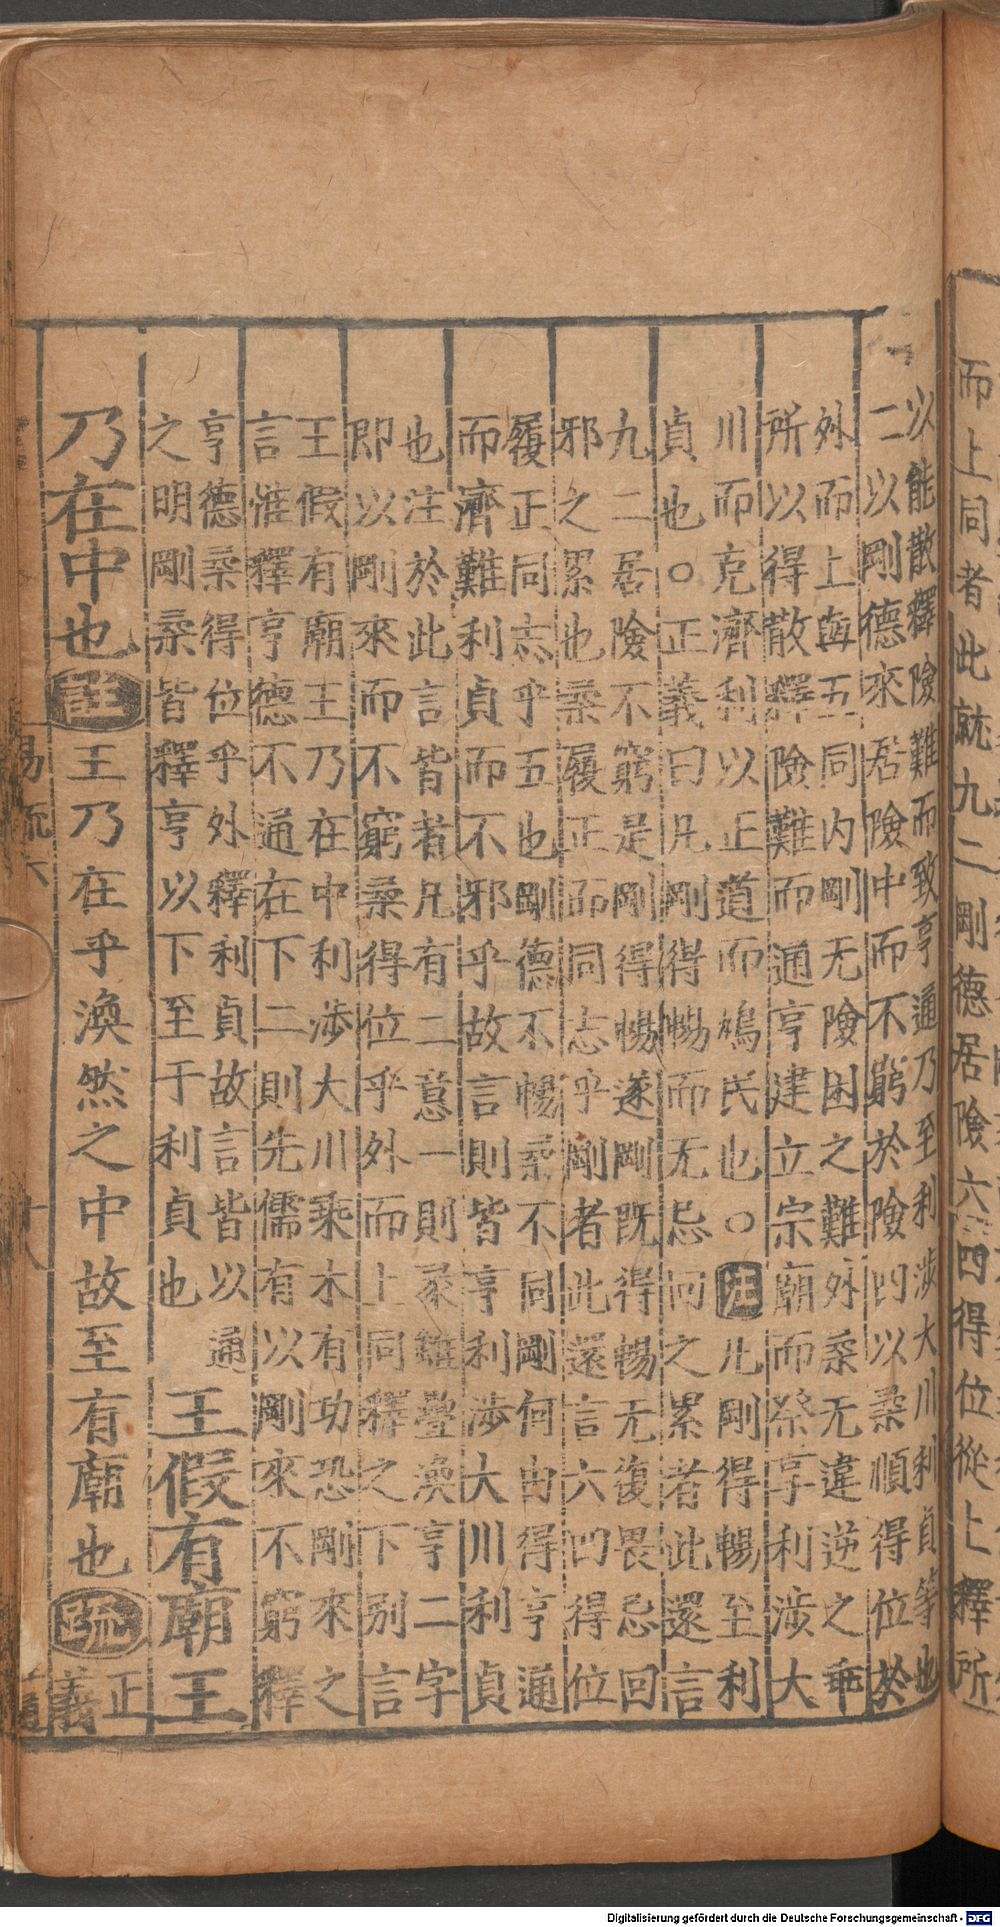 而上同者此就九二剛德居險六四得位從上釋所
以能散釋險難而致亨通乃至利涉大川利貞等也
二以剛德來居險中而不窮於險四以柔順得位於
外而上與五同内剛无險困之難外柔无違逆之乖
所以得散釋險難而通亨建立宗廟而祭享利涉大
川而克濟利以正道而鳩民也○注凡剛得暢至利
貞也○正義曰凡剛得暢而无忌回之累者此還言
九二居險不窮是剛得暢遂剛既得暢无復畏忌回
邪之累也柔履正而同志乎剛者此還言六四得位
履正同志乎五也剛德不暢柔不同剛何由得亨通
而濟難利貞而不邪乎故言則皆亨利涉大川利貞
也注於此言皆者凡有二意一則彖雖疊渙亨二字
即以剛來而不窮柔得位乎外而上同釋之下别言
王假有廟王乃在中利涉大川乘木有功恐剛來之
言惟釋亨德不通在下二則先儒有以剛來不窮釋
亨德柔得位乎外釋利貞故言皆以通
之明剛柔皆釋亨以下至于利貞也
王假有廟王
乃在中也註王乃在乎渙然之中故至有廟也疏正
義
易疏六 十八
Digitalisierung gefördert durch die Deutsche Forschungsgemeinschaft - DFG